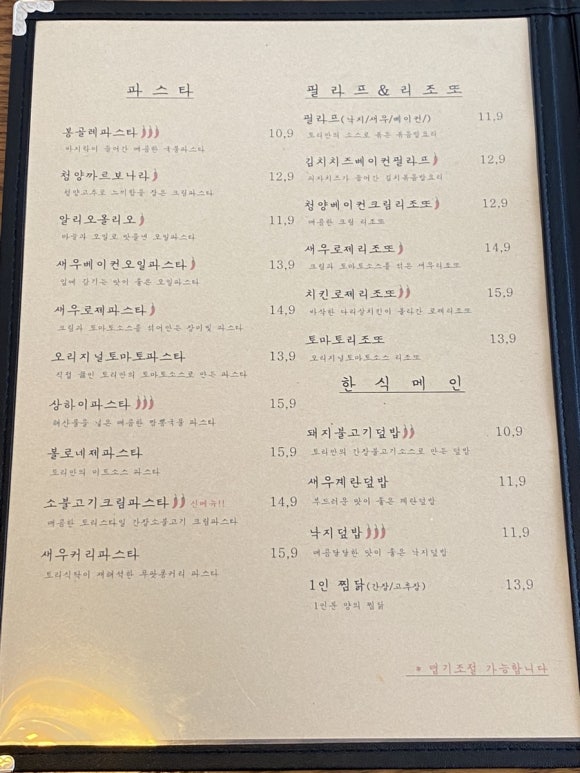 파스타
봉골레파스타 10,9
바지락이 들어간 매콤한 국물파스타
청양까르보나라 12,9
청양고추로 느끼함을 잡은 크림파스타
알리오올리오 11,9
마늘과 오일로 맛을낸 오일파스타
새우베이컨오일파스타 13,9
입에 감기는 맛이 좋은 오일파스타
새우로제파스타 14,9
크림과 토마토소스를 섞어만든 장미빛 파스타
오리지널토마토파스타 13,9
직접 끓인 토리만의 토마토소스로 만든 파스타
상하이파스타 15,9
해산물을 넣은 매콤한 짬뽕국물 파스타
볼로네제파스타 15,9
토리만의 미트소스 파스타
소불고기크림파스타 신메뉴!! 14,9
매콤한 토리스타일 간장소불고기 크림파스타
새우커리파스타 15,9
토리식탁이 재해석한 푸팟퐁커리 파스타
필라프&리조또
필라프(낙지/새우/베이컨/) 11,9
토리만의 소스로 볶은 볶음밥요리
김치치즈베이컨필라프 12,9
피자치즈가 들어간 김치볶음밥요리
청양베이컨크림리조또 12,9
매콤한 크림 리조또
새우로제리조또 14,9
크림과 토마토소스를 섞은 새우리조또
치킨로제리조또 15,9
바삭한 닭다리살치킨이 올라간 로제리조또
토마토리조또 13,9
오리지널토마토소스 리조또
한식메인
돼지불고기덮밥 10,9
토리만의 간장불고기소스로 만든 덮밥
새우계란덮밥 11,9
부드러운 맛이 좋은 계란덮밥
낙지덮밥 11,9
매콤달달한 맛이 좋은 낙지덮밥
1인 찜닭(간장/고추장) 13,9
1인분 양의 찜닭
* 맵기조절 가능합니다